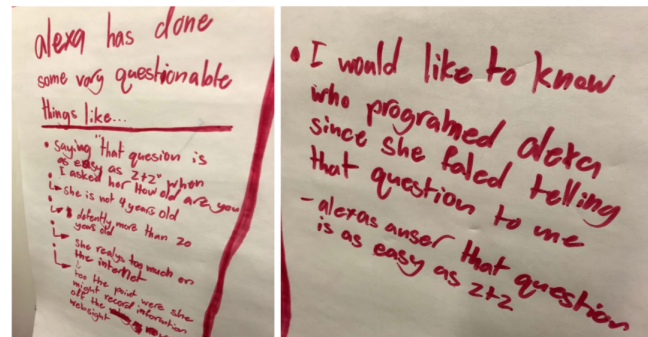 alexa has done
some very questionable
things like...
• saying "that quesion is
as easy as 2+2" when
I asked her How old are you
↳ she is not 4 years old
↳ defently more than 20
years old
↳ She realys too much on
the internet
↳ too the point were she
might record information
off the
websight
• I would like to know
who programed alexa
since she faled telling
that question to me
- alexas anser that question
is as easy as 2+2